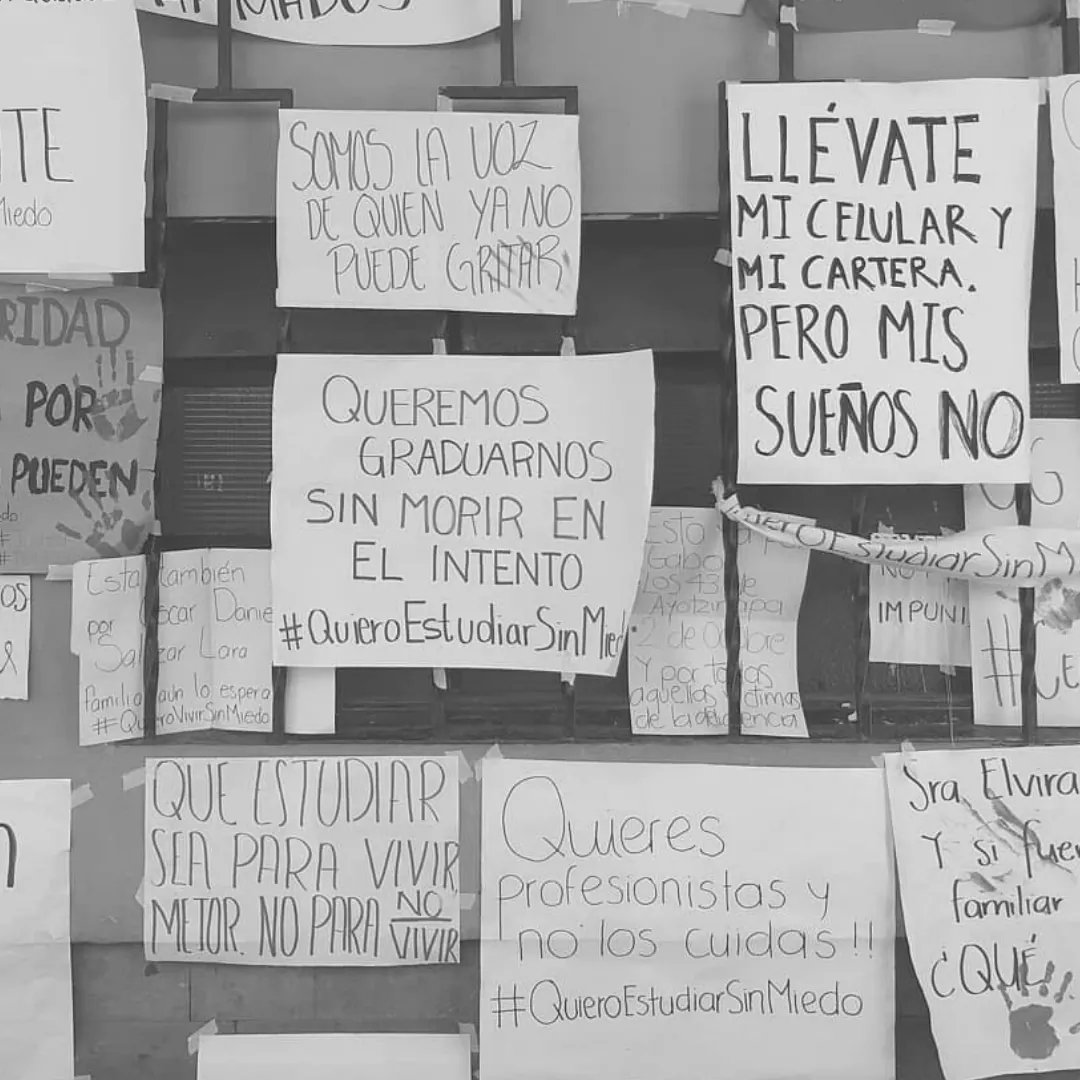 MADOS
TE
Miedo
SOMOS LA VOZ
DE QUIEN YA NO
PUEDE GRITAR
LLÉVATE
MI CELULAR Y
MI CARTERA.
PERO MIS
SUEÑOS NO
RIDAD
POR
PUEDEN
QUEREMOS
GRADUARNOS
SIN MORIR EN
EL INTENTO
#QuieroEstudiarSinMied
Esta también
por Oscar Danie
Salazar Lara
Familia aun lo espera
#QuieroVivirSinMiedo
Esto
Gabo
Los 43 de
Ayotzinapa
2 de Octubre
Y por todas
aquellas víctimas
de la delincuencia
EstudiarSinM
IMPUNI
QUE ESTUDIAR
SEA PARA VIVIR
MEJOR. NO PARA NO
VIVIR
Quieres
profesionistas y
no los cuidas!!
#QuieroEstudiarSinMiedo
Sra Elvira
Y si fuer
familiar
¿QUÉ